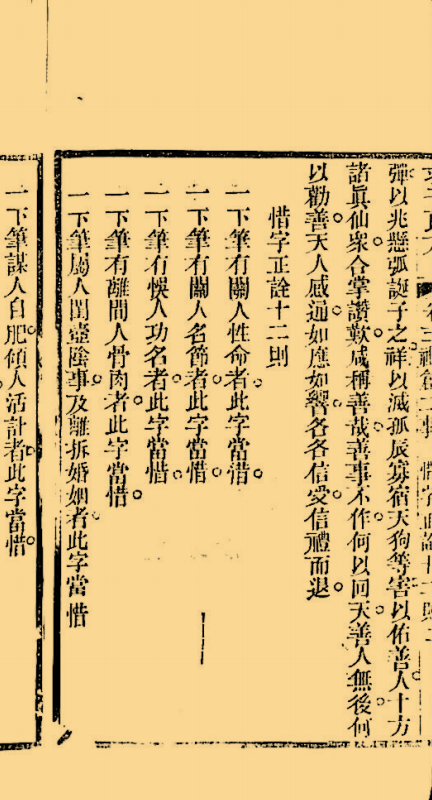 彈以兆懸弧誕子之祥以滅孤辰寡宿天狗等害以佑善人十方
諸眞仙衆合掌讚歎咸稱善哉善事不作何以回天善人無後何
以勸善天人感通如應如響各各信受信禮而退
惜字正詮十二則
一下筆有關人性命者此字當惜
一下筆有關人名節者此字當惜
一下筆有悞人功名者此字當惜
一下筆有離間人骨肉者此字當惜
一下筆屬人閨壼陰事及離拆婚姻者此字當惜
一下筆謀人自肥傾人活計者此字當惜